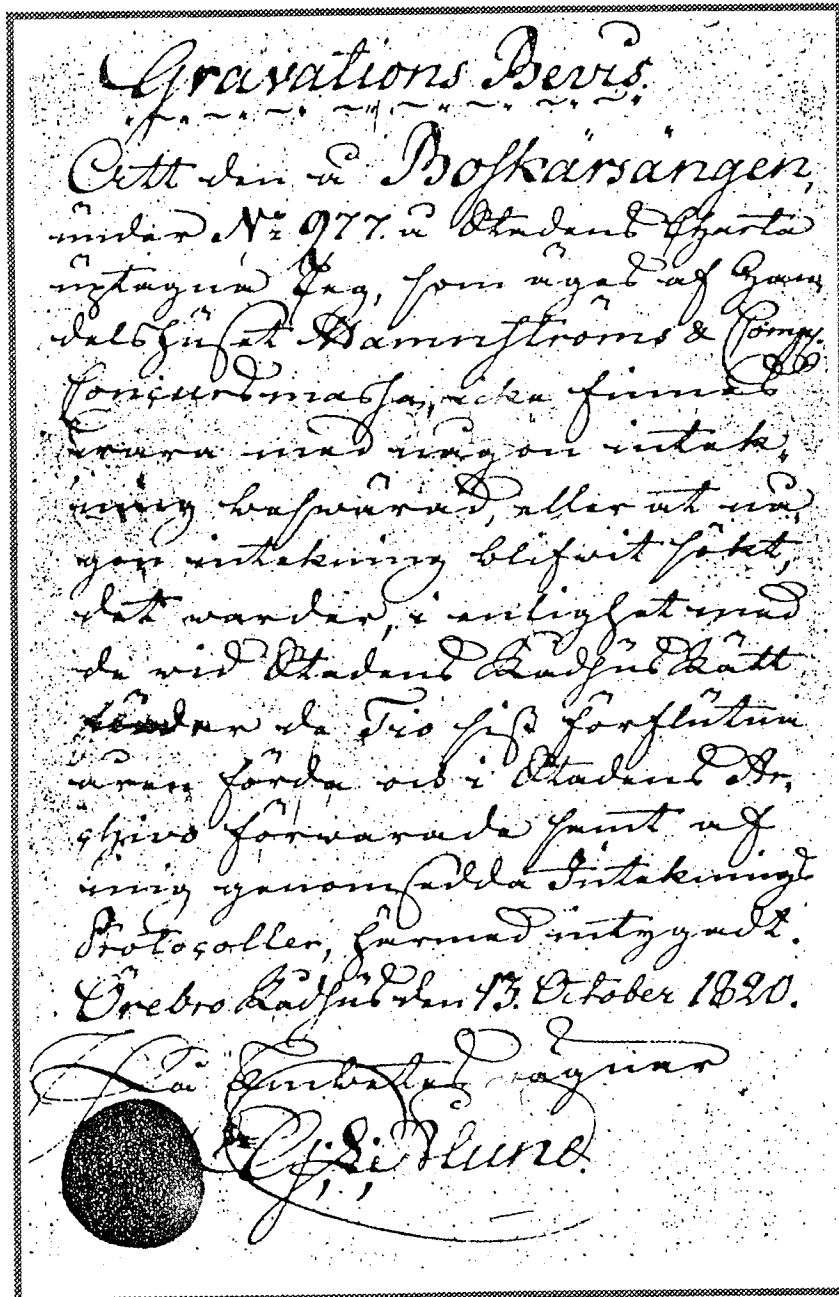 Gravations Bevis.
Att den å Boskärsängen,
under No 977. å Stadens Charta
uptagne Teg, som äges af Han,
delshuset Hammströms & Comp.
Concursmassa, icke finnes
wara med någon intek,
ning beswärad, eller at nå,
gon intekning blifwit sökt,
det warder, i enlighet med
de wid Stadens RådhusRätt
under de Tio sist förflutna
åren förda och i Stadens Ar,
chivo förwarade samt af
mig genomsedda Inteknings
Protocoller, härmed intygadt.
Örebro Rådhus den 13. October 1820.
På Embetes wägnar